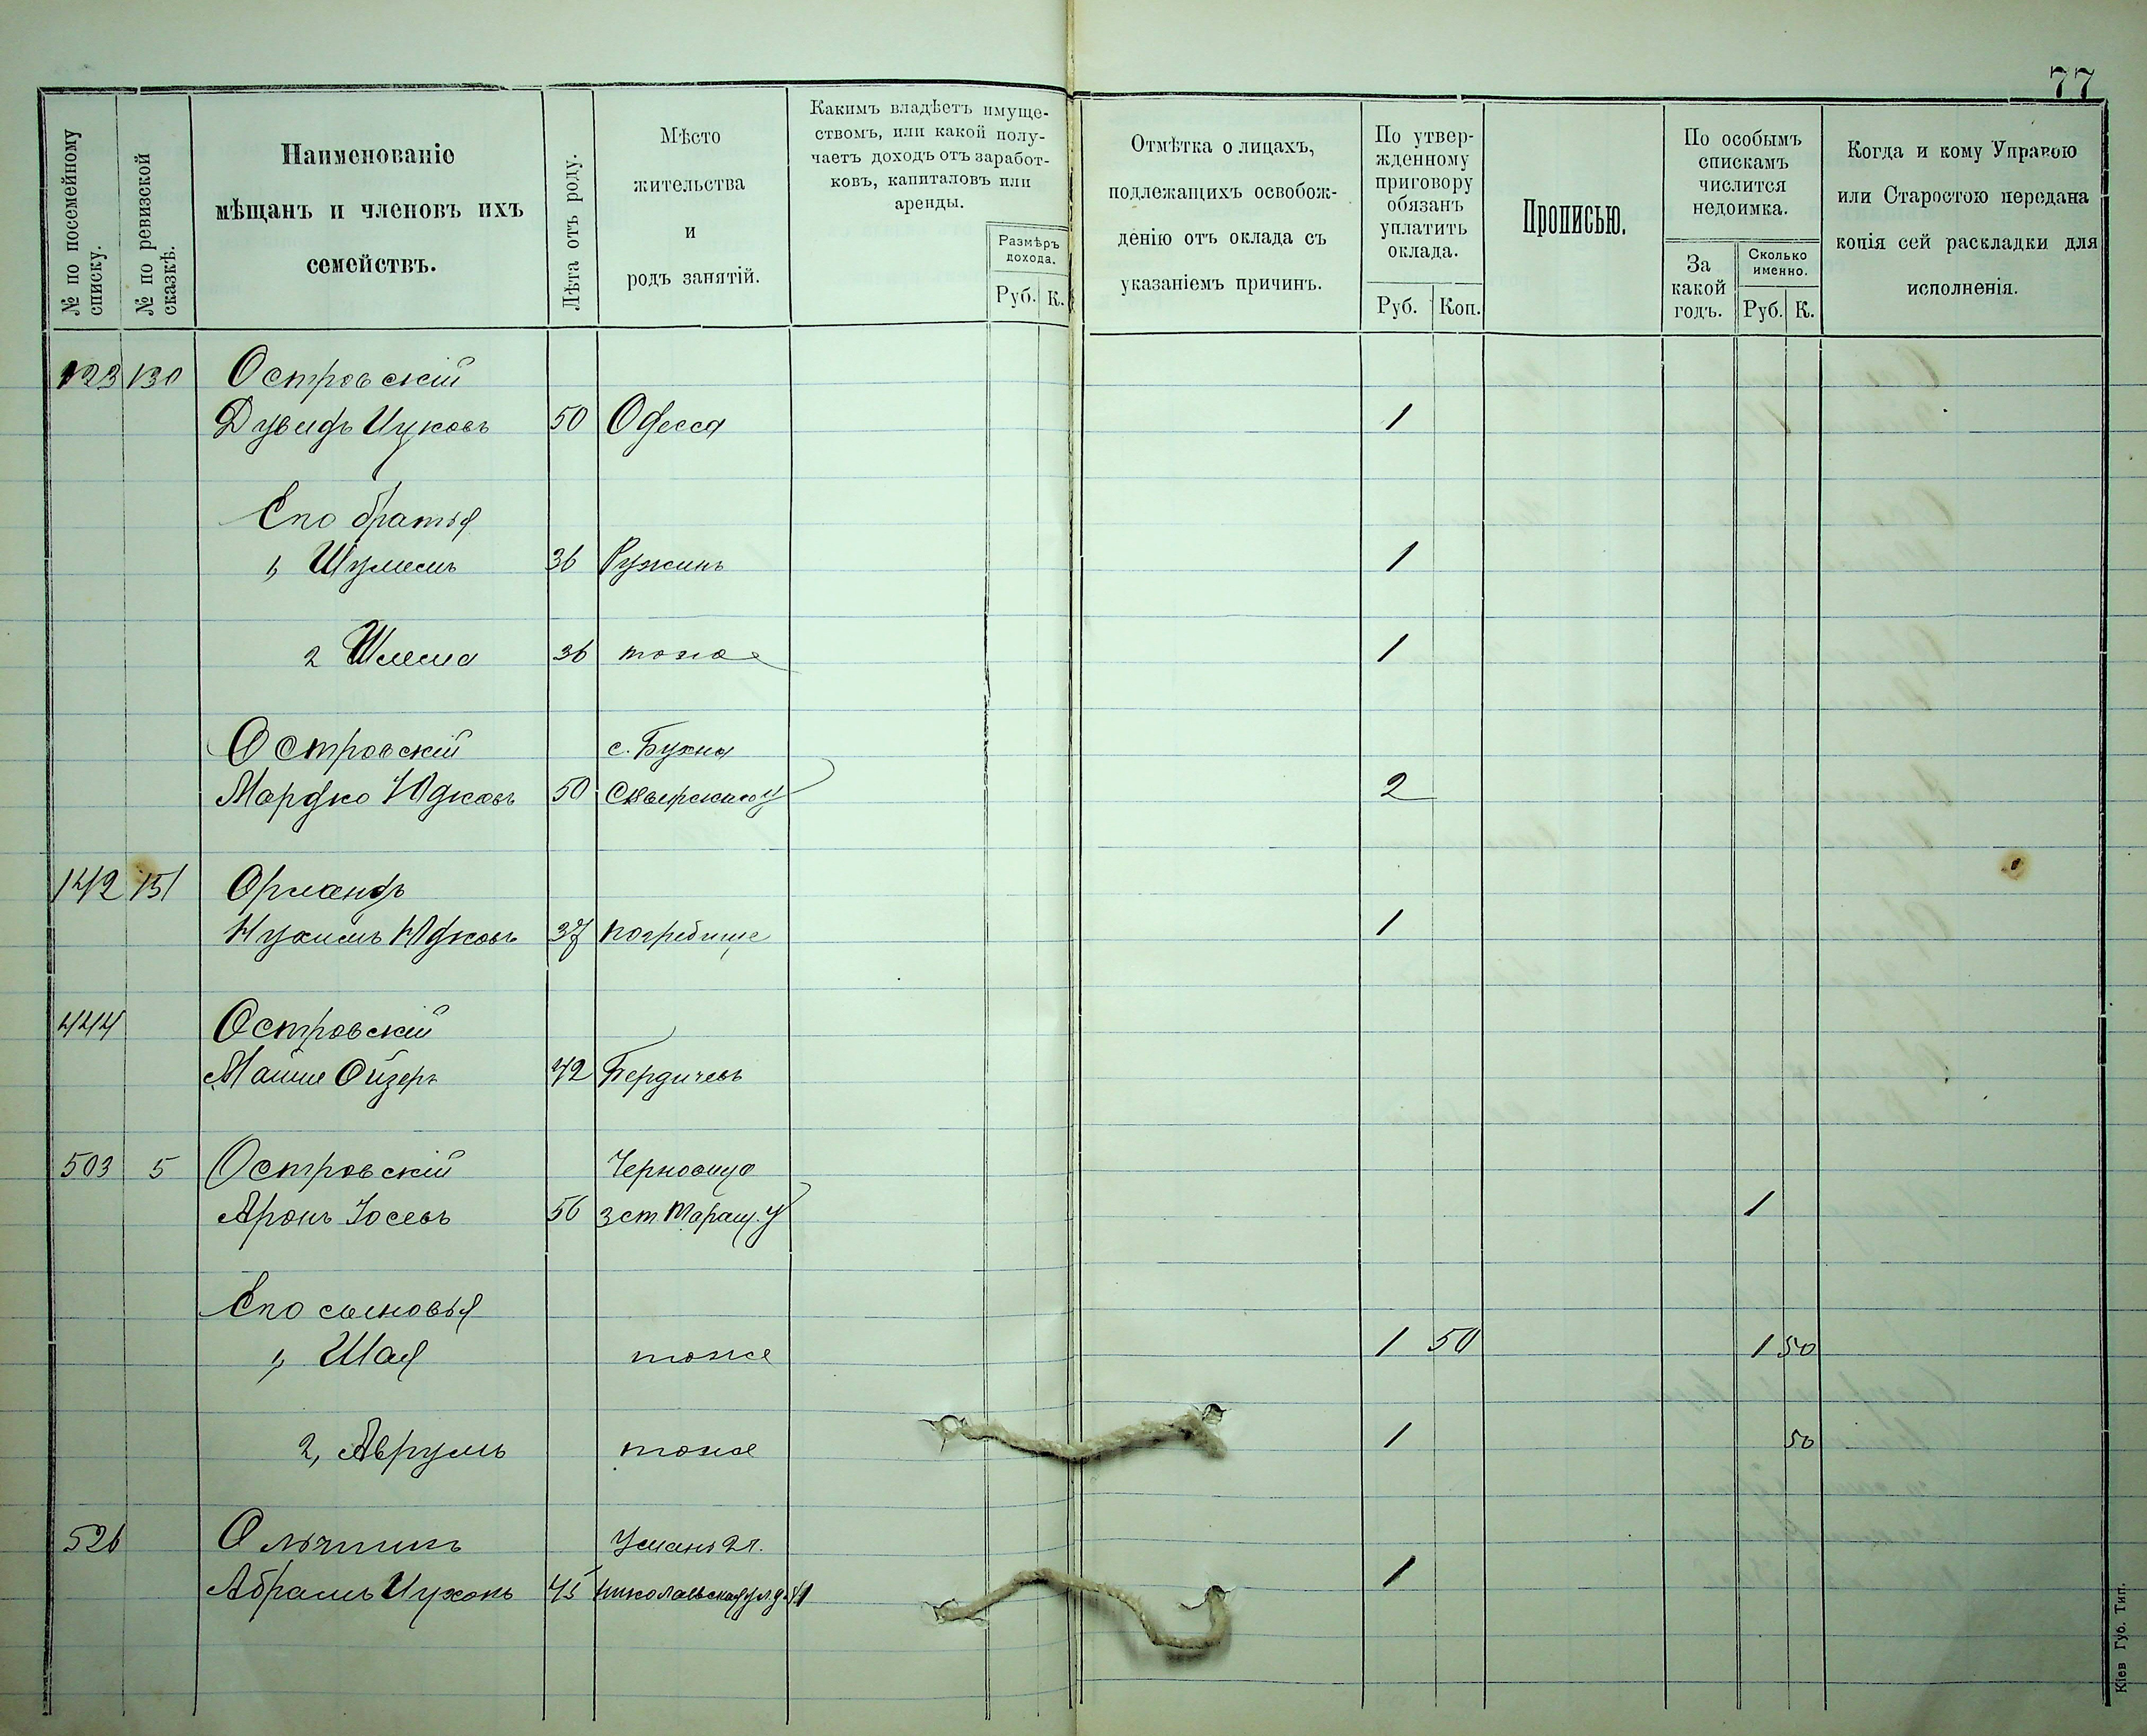 77
№ по посемейному списку.
№ по ревизской сказкѣ.
Наименованіе
мѣщанъ и членовъ ихъ
семействъ.
Лѣта отъ роду.
Мѣсто
жительства
и
родъ занятій.
Какимъ владѣетъ имуще-
ствомъ, или какой полу-
чаетъ доходъ отъ заработ-
ковъ, капиталовъ или
аренды.
Размѣръ
дохода.
Руб. К.
Отмѣтка о лицахъ,
подлежащихъ освобож-
денію отъ оклада съ
указаніемъ причинъ.
По утвер-
жденному
приговору
обязанъ
уплатить
оклада.
Руб. Коп.
Прописью.
По особымъ
спискамъ
числится
недоимка.
За
какой
годъ.
Сколько
именно.
Руб. К.
Когда и кому Управою
или Старостою передана
копія сей раскладки для
исполненія.
123 130 Островскій
Дувидъ Ицковъ 50 Одесса 1
Его братья
1, Шулимъ 36 Ружинъ 1
2 Шлема 36 тоже 1
Островскій с. Бухна
Мордко Юдковъ 50 Сквирского у 2
142 151 Орландъ
Нухимъ Юдковъ 37 Погребище 1
444 Островскій
Мошие Ойзеръ 42 Бердичевъ
503 5 Островскій
Аронъ Іосевъ 56 3 ст. Таращ. у 1
Его сыновья
1, Шая тоже 1 50 1 50
2, Аврумъ тоже 1 50
526 Умань 2 ч.
Абрамъ 45 Николаевская ул. д. 41 1
Кіев Губ. Тип.